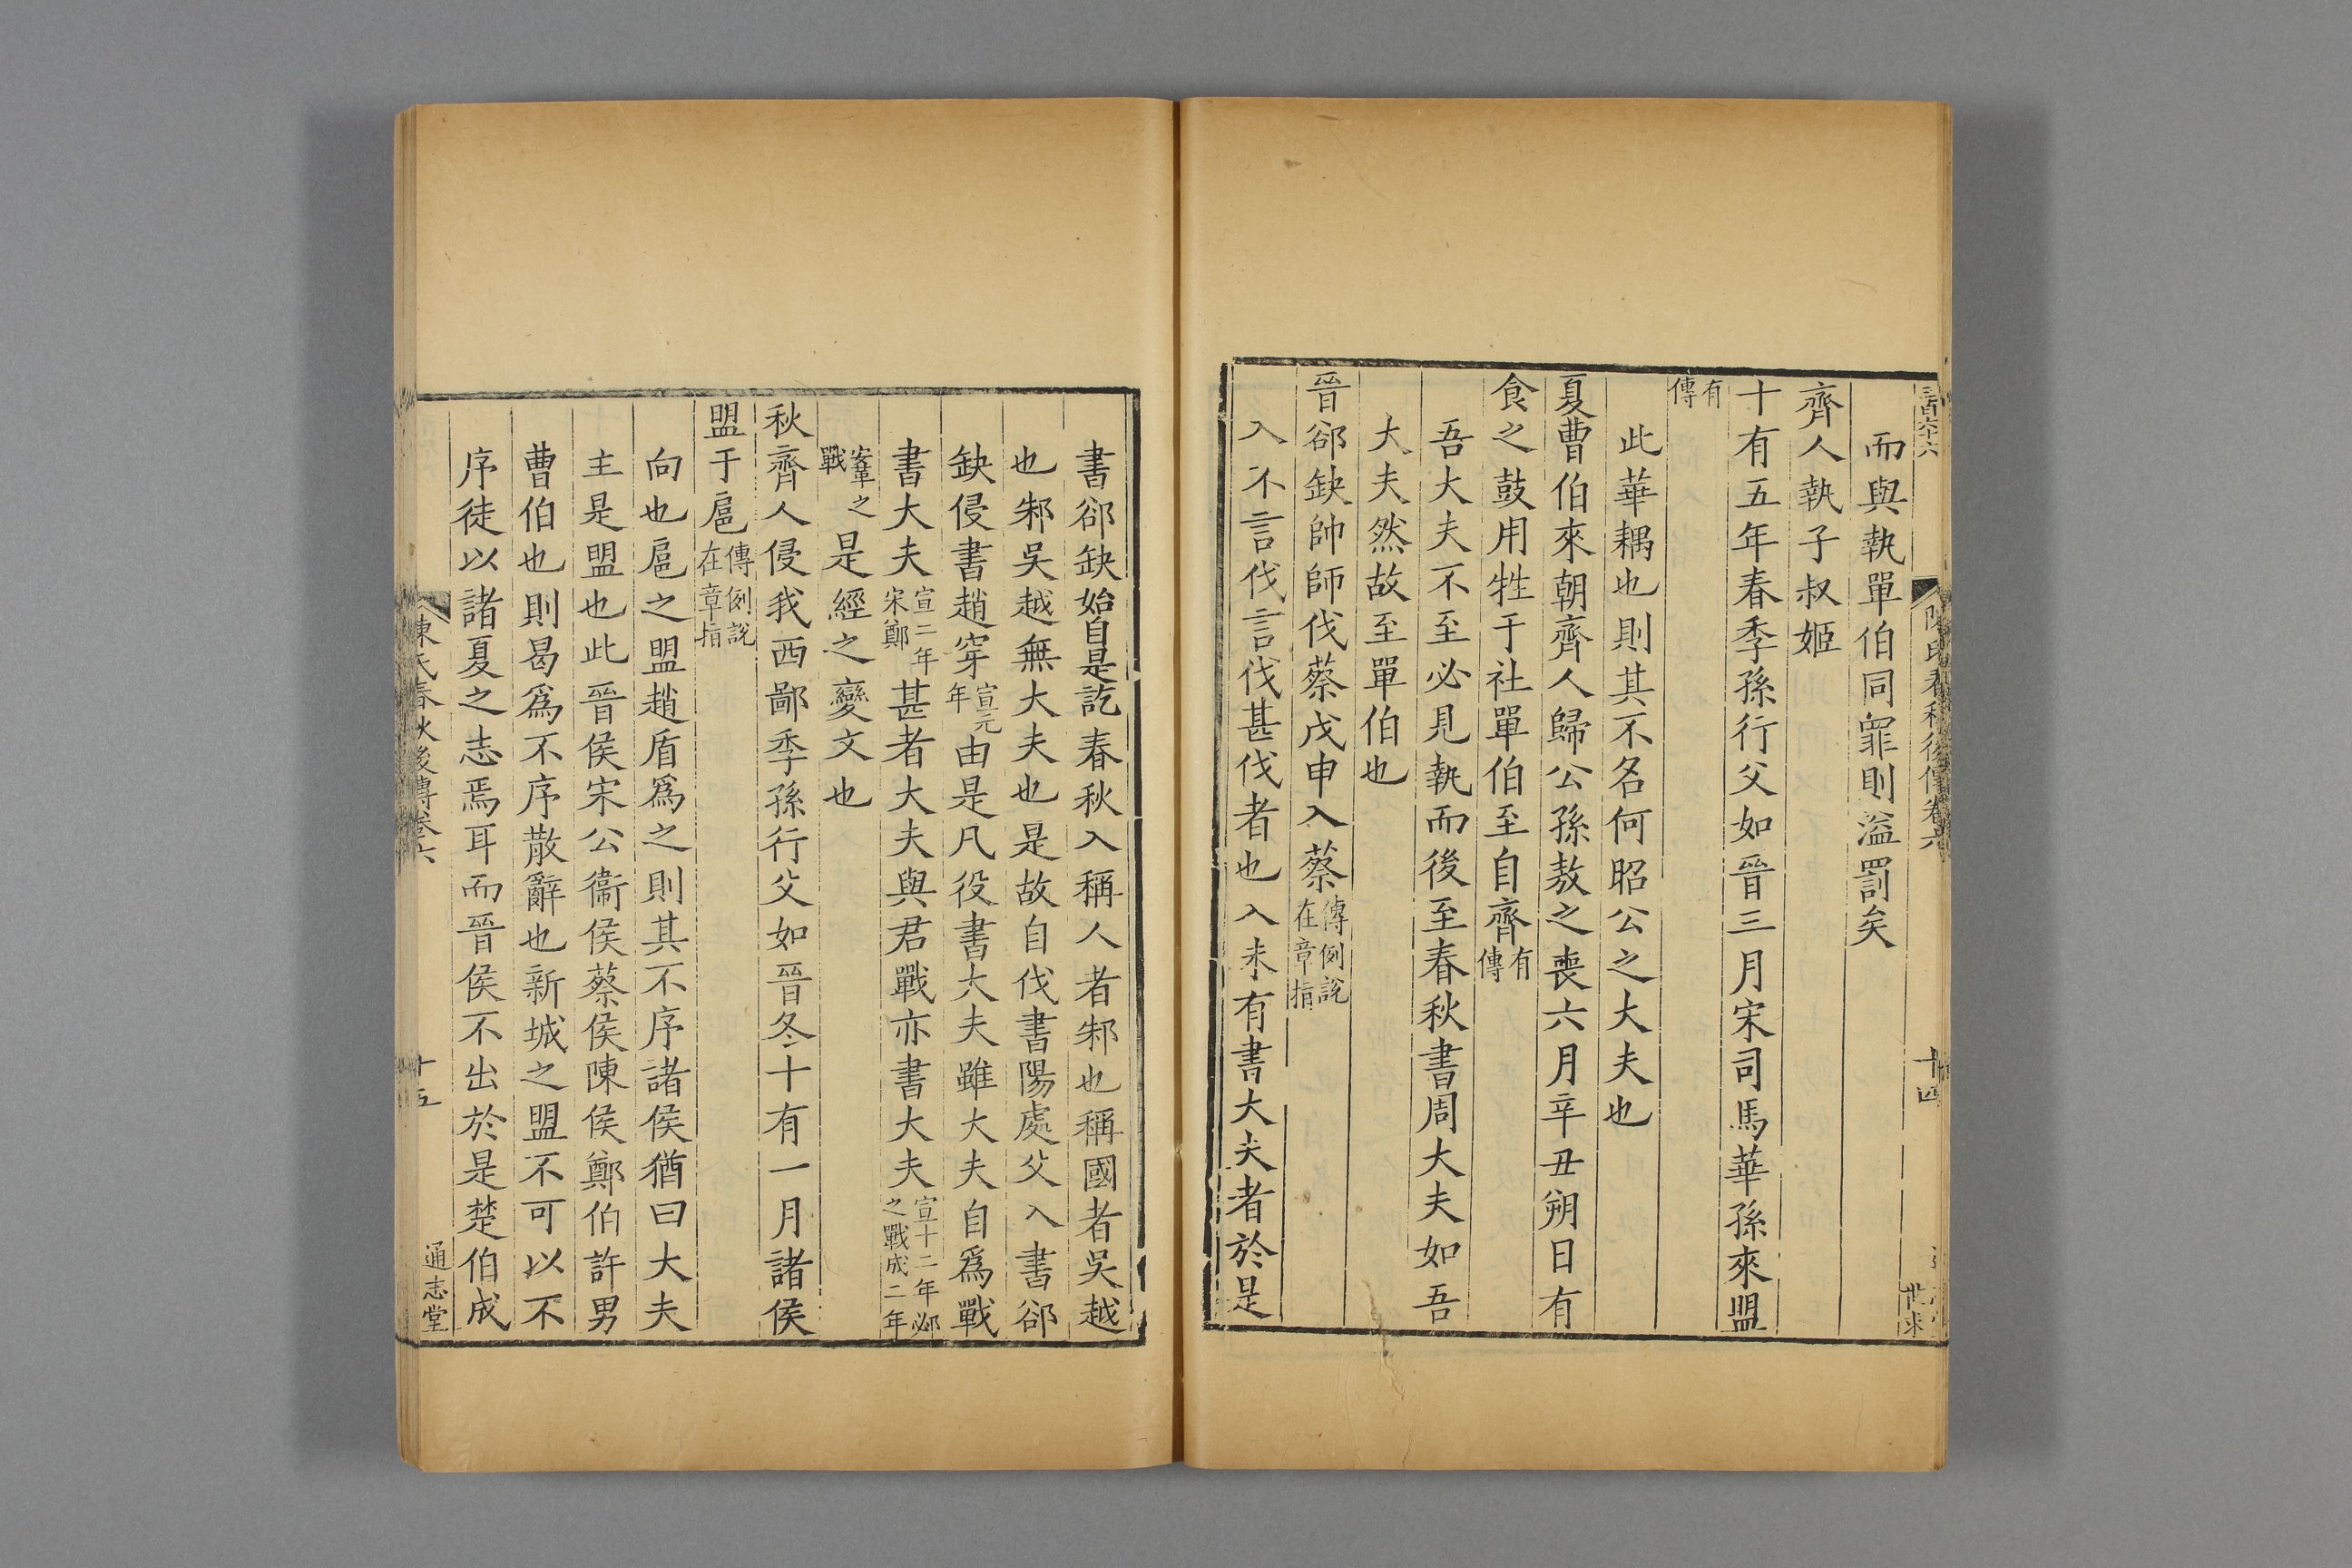 而與執單伯同罪則溢罰矣
齊人執子叔姬
十有五年春季孫行父如晉三月宋司馬華孫來盟
有傳
此華耦也則其不名何昭公之大夫也
夏曹伯來朝齊人歸公孫敖之喪六月辛丑朔日有
食之鼓用牲于社單伯至自齊有傳
吾大夫不至必見執而後至春秋書周大夫如吾
大夫然故至單伯也
晉郤缺帥師伐蔡戊申入蔡傳例說在章指
入不言伐言伐甚伐者也入未有書大夫者於是
書郤缺始自是訖春秋入稱人者邾也稱國者吳越
也邾吳越無大夫也是故自伐書陽處父入書郤
缺侵書趙穿宣元年由是凡役書大夫雖大夫自爲戰
書大夫宣二年宋鄭甚者大夫與君戰亦書大夫宣十二年邲之戰成二年
安鞌之戰是經之變文也
秋齊人侵我西鄙季孫行父如晉冬十有一月諸侯
盟于扈傳例說在章指
向也扈之盟趙盾爲之則其不序諸侯猶曰大夫
主是盟也此晉侯宋公衞侯蔡侯陳侯鄭伯許男
曹伯也則曷爲不序散辭也新城之盟不可以不
序徒以諸夏之志焉耳而晉侯不出於是楚伯成
陳氏春秋後傳卷六
十五
通志堂
十四